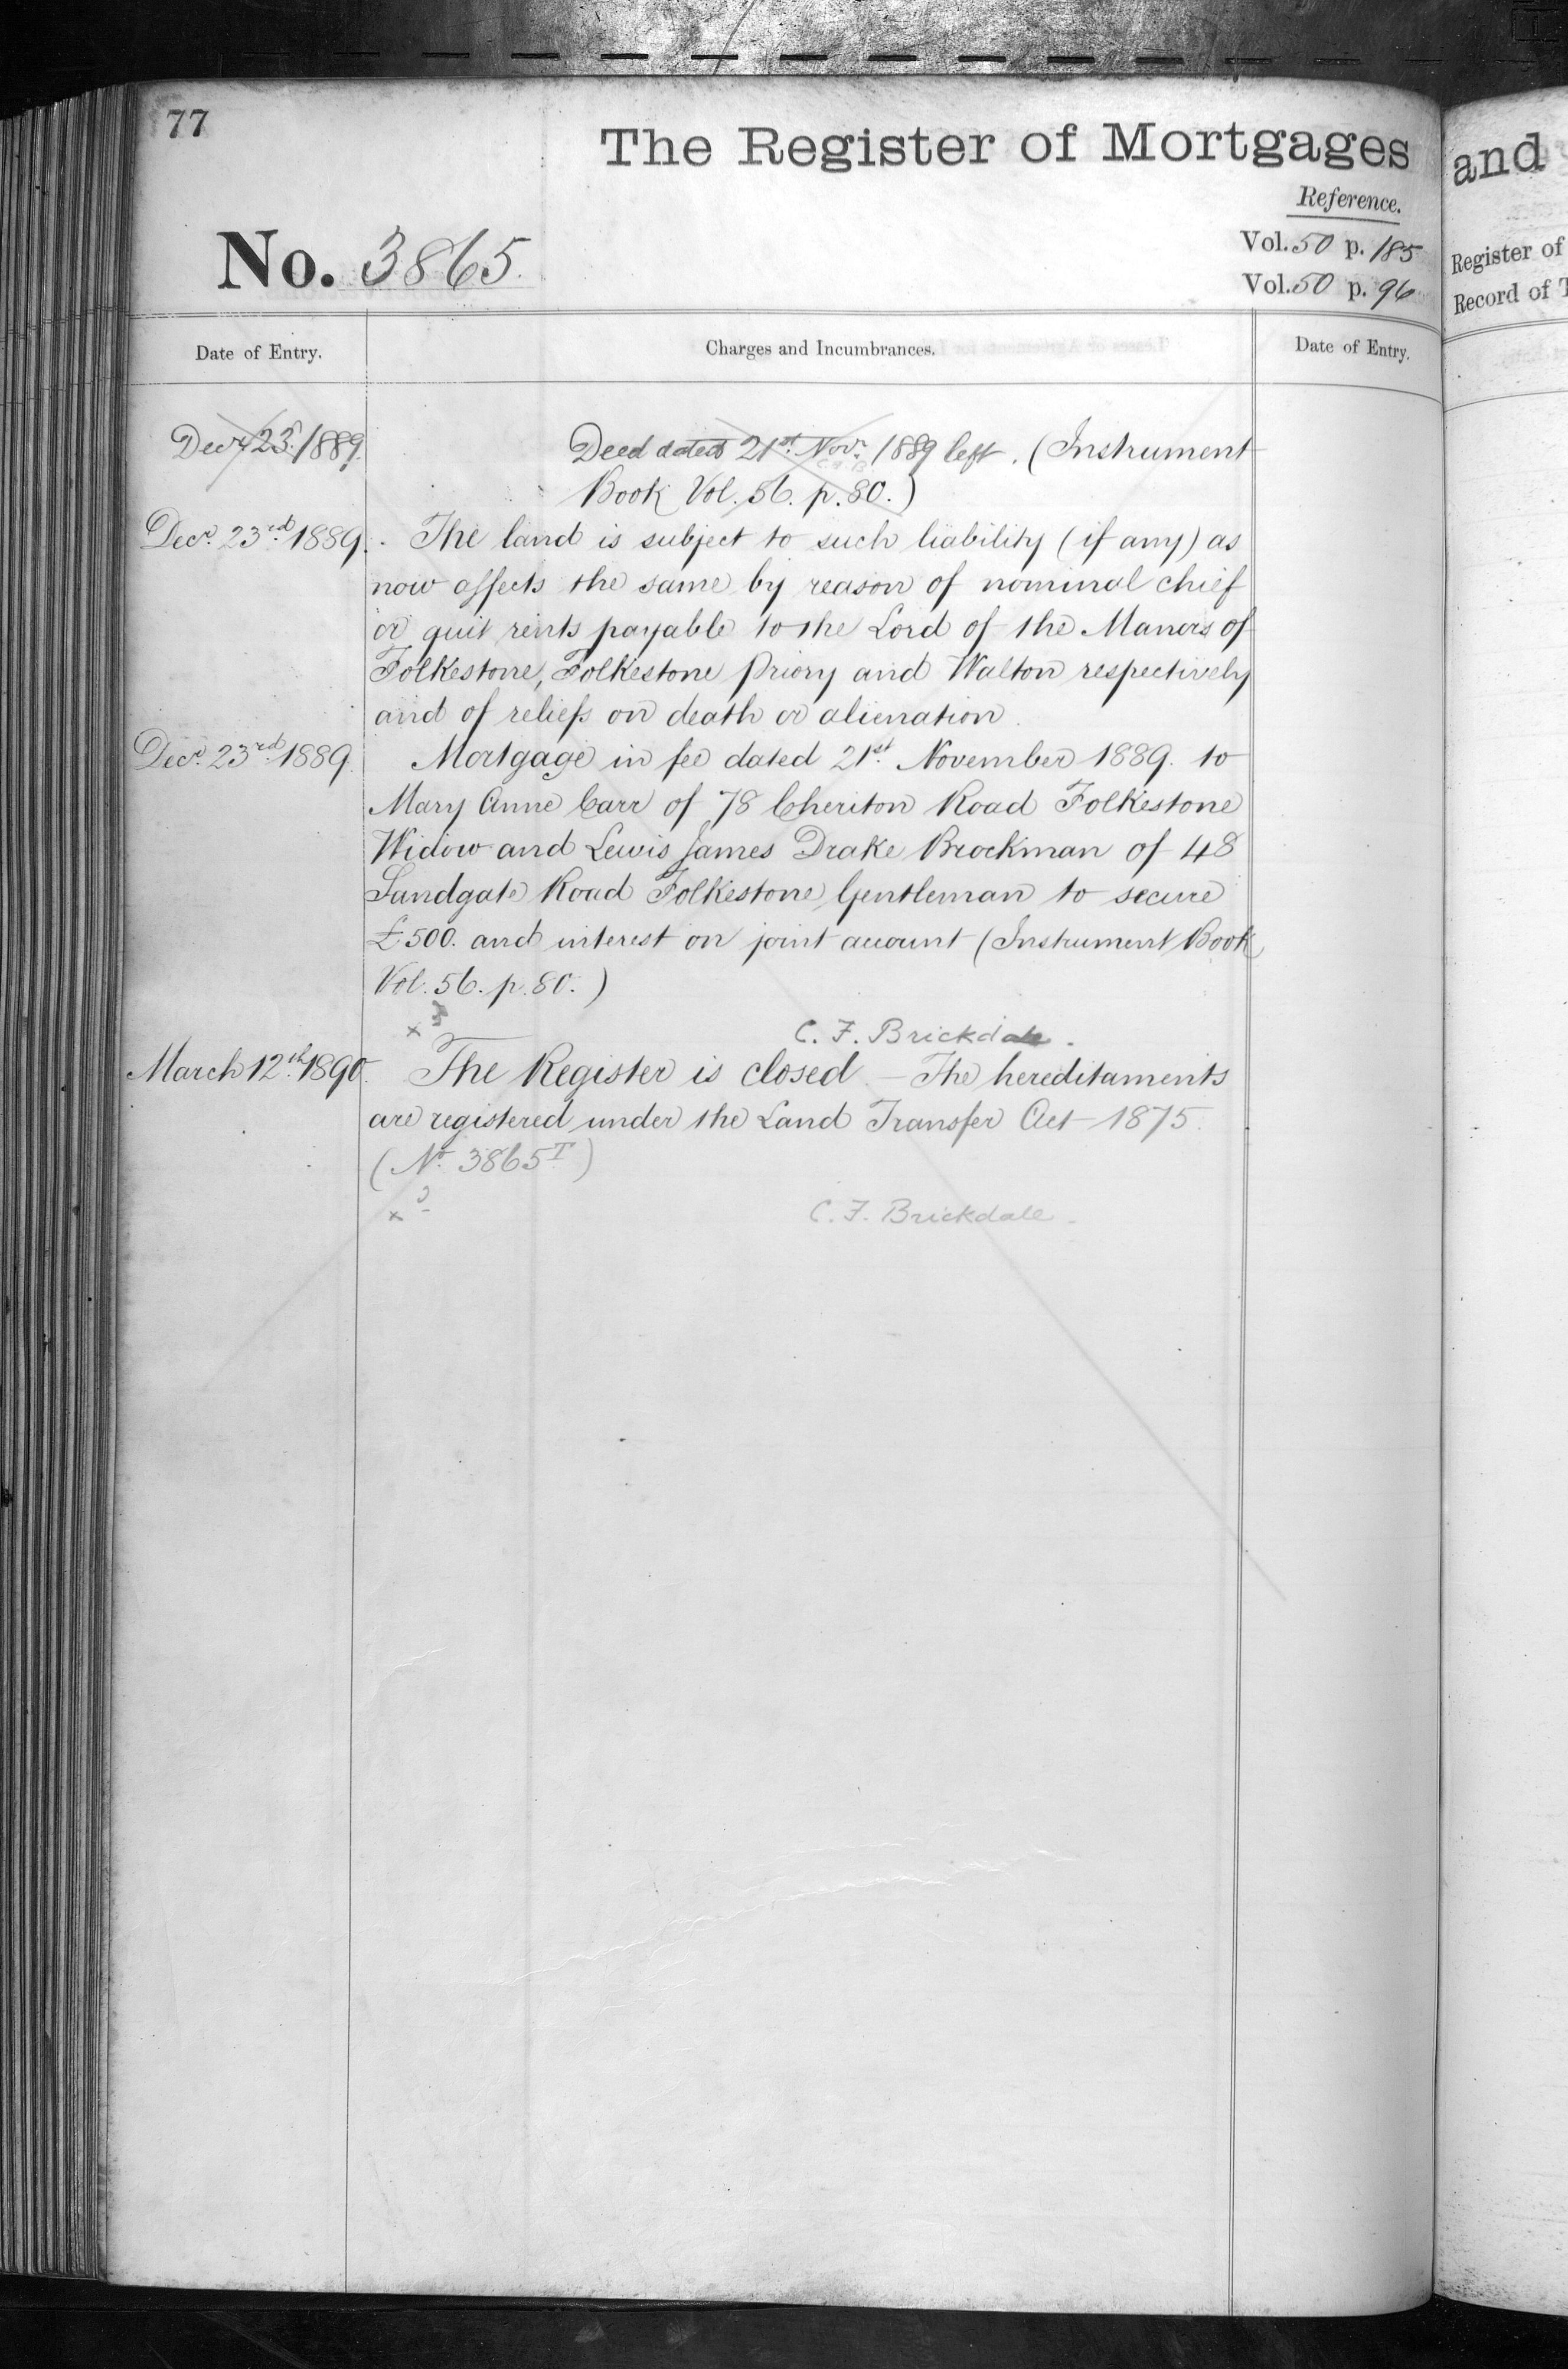 77
The Register of Mortgages
and
Reference.
No. 3865.
Vol. 50 p. 185
Vol. 50 p. 96
Register of
Record of T
Date of Entry.
Charges and Incumbrances.
Date of Entry.
Decr 23. 1889. Deed dated 21st Novr 1889 left. (Instrument
Book Vol. 56. p. 80.)
Decr. 23rd 1889. The land is subject to such liability (if any) as
now affects the same by reason of nominal chief
or quit rents payable to the Lord of the Manors of
Folkestone, Folkestone Priory and Walton respectively
and of reliefs on death or alienation.
Decr. 23rd 1889. Mortgage in fee dated 21st November 1889. to
Mary Anne Carr of 78 Cheriton Road Folkestone
Widow and Lewis James Drake Brockman of 48
Sandgate Road Folkestone Gentleman to secure
£500. and interest on joint account (Instrument Book
Vol. 56. p. 80.)
x
C. F. Brickdale.
March 12th 1890. The Register is closed – The hereditaments
are registered under the Land Transfer Act 1875.
(No. 3865T)
x
C. F. Brickdale.